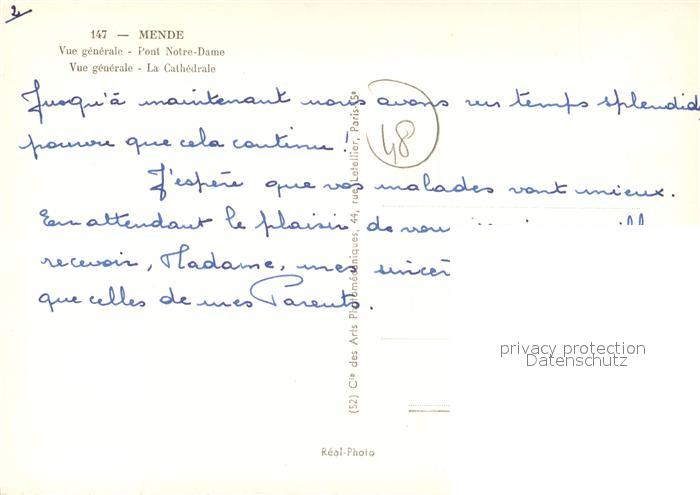 2
147 — MENDE
Vue générale - Pont Notre-Dame
Vue générale - La Cathédrale
Jusqu'à maintenant nous avons un temps splendid
pourvu que cela continue !
48
J'espère que vos malades vont mieux.
En attendant le plaisir de vou
recevoir, Madame, mes sincèr
que celles de mes Parents.
(52) Cie des Arts Photomécaniques, 44, rue Letellier, Paris-15e
privacy protection
Datenschutz
Réal-Photo